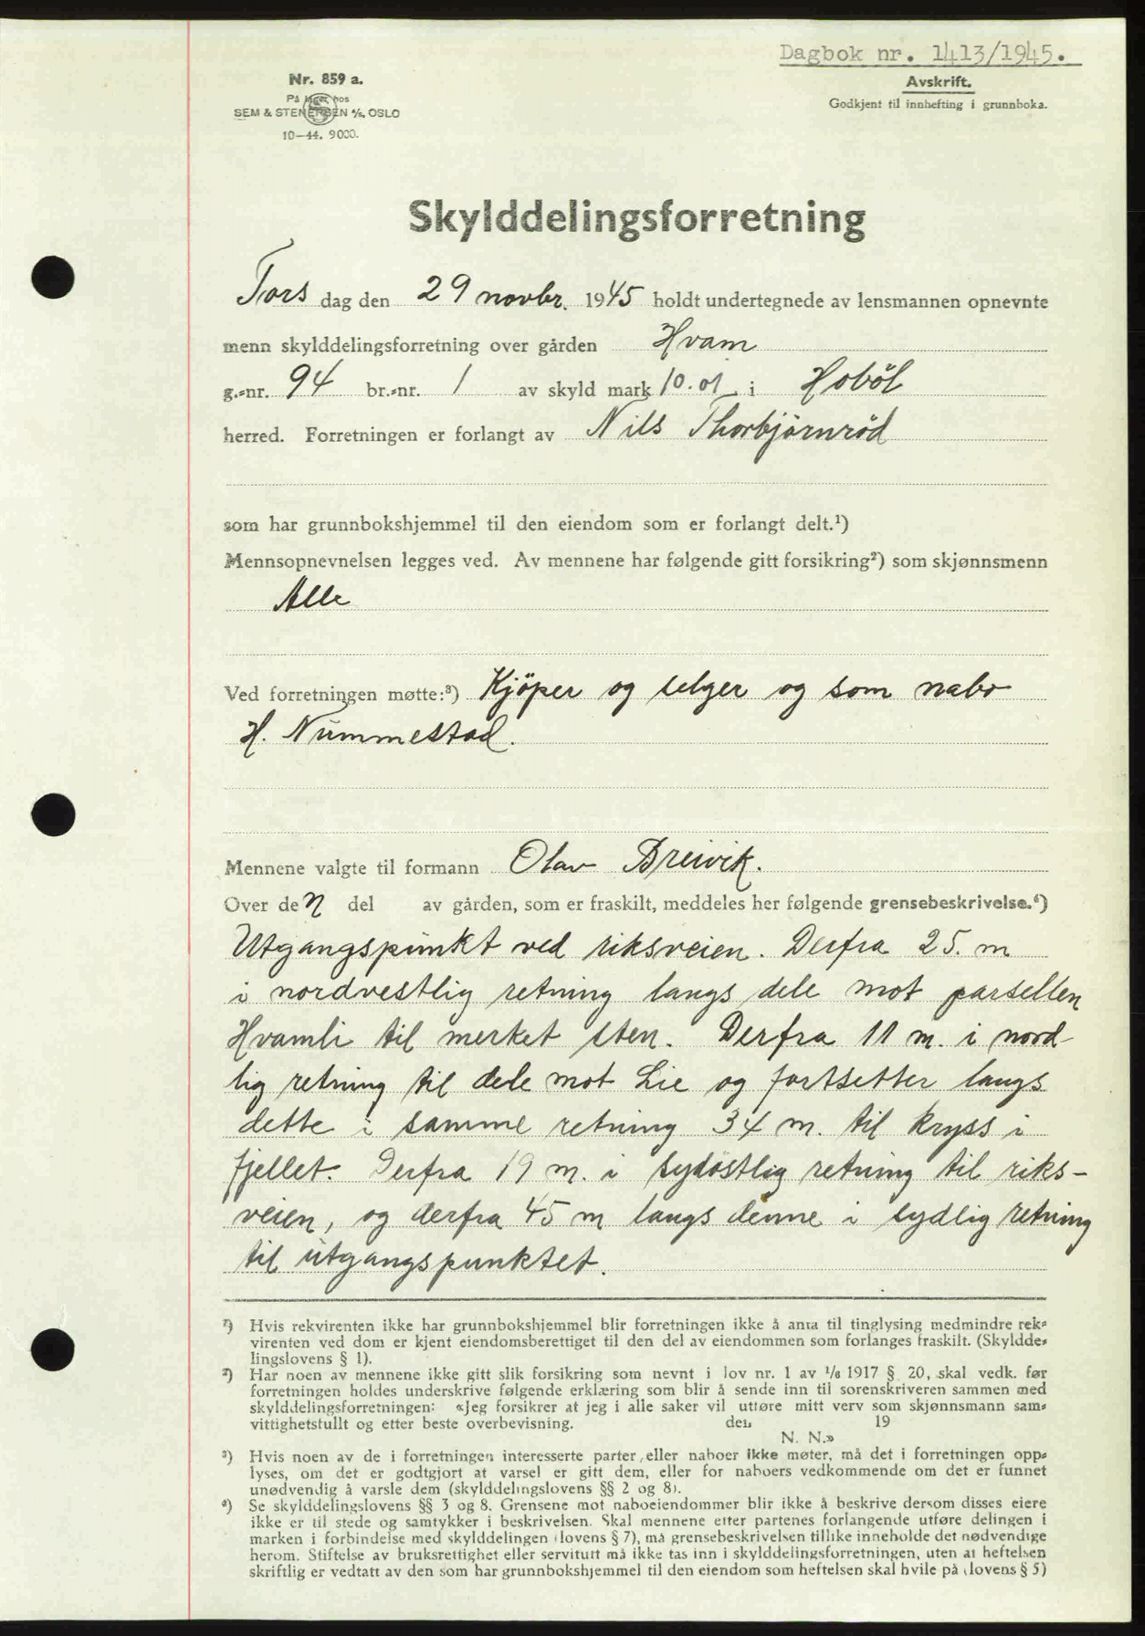 Dagbok nr. 1413/1945.
Avskrift.
Godkjent til innhefting i grunnboka.
Nr. 859 a.
På lager hos
SEM & STENERSEN A/S, OSLO
10-44. 9000.
Skylddelingsforretning
Tors dag den 29 novbr. 1945 holdt undertegnede av lensmannen opnevnte
menn skylddelingsforretning over gården Hvam
g.-nr. 94 br.-nr. 1 av skyld mark 10.01 i Hobøl
herred. Forretningen er forlangt av Nils Thorbjörnröd
som har grunnbokshjemmel til den eiendom som er forlangt delt.¹)
Mennsopnevnelsen legges ved. Av mennene har følgende gitt forsikring²) som skjønnsmenn
Alle
Ved forretningen møtte:³) Kjöper og selger og som nabo
H. Nummestad.
Mennene valgte til formann Olav Breivik.
Over de n del av gården, som er fraskilt, meddeles her følgende grensebeskrivelse.⁴)
Utgangspunkt ved riksveien. Derfra 25. m
i nordvestlig retning langs dele mot parsellen
Hvamli til merket sten. Derfra 11 m. i nord-
lig retning til dele mot Lie og fortsetter langs
dette i samme retning 34 m. til kryss i
fjellet. Derfra 19 m. i sydöstlig retning til riks-
veien, og derfra 45 m langs denne i sydlig retning
til utgangspunktet.
¹) Hvis rekvirenten ikke har grunnbokshjemmel blir forretningen ikke å anta til tinglysing medmindre rek-
virenten ved dom er kjent eiendomsberettiget til den del av eiendommen som forlanges fraskilt. (Skyldde-
lingslovens § 1).
²) Har noen av mennene ikke gitt slik forsikring som nevnt i lov nr. 1 av 1/6 1917 § 20, skal vedk. før
forretningen holdes underskrive følgende erklæring som blir å sende inn til sorenskriveren sammen med
skylddelingsforretningen: «Jeg forsikrer at jeg i alle saker vil utføre mitt verv som skjønnsmann sam-
vittighetsfullt og etter beste overbevisning. den 19
N. N.»
³) Hvis noen av de i forretningen interesserte parter eller naboer ikke møter, må det i forretningen opp-
lyses, om det er godtgjort at varsel er gitt dem, eller for naboers vedkommende om det er funnet
unødvendig å varsle dem (skylddelingslovens §§ 2 og 8).
⁴) Se skylddelingslovens §§ 3 og 8. Grensene mot naboeiendommer blir ikke å beskrive dersom disses eiere
ikke er til stede og samtykker i beskrivelsen. Skal mennene etter partenes forlangende utføre delingen i
marken i forbindelse med skylddelingen (lovens § 7), må grensebeskrivelsen tillike inneholde det nødvendige
herom. Stiftelse av bruksrettighet eller servitutt må ikke tas inn i skylddelingsforretningen, uten at heftelsen
skriftlig er vedtatt av den som har grunnbokshjemmel til den eiendom som heftelsen skal hvile på (lovens § 5)